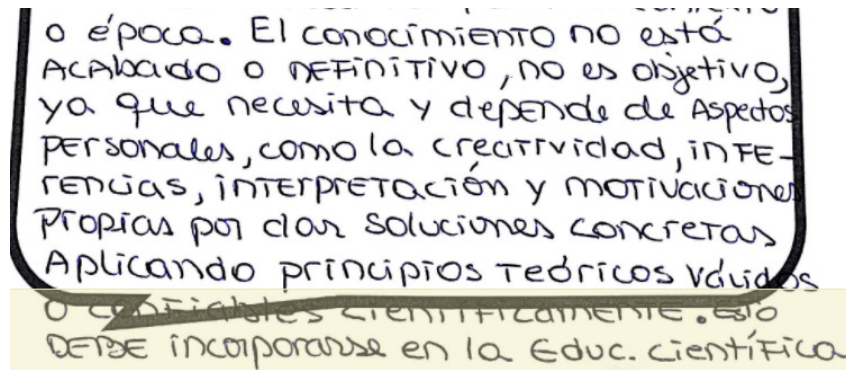 o época. El conocimiento no está
Acabado o definitivo, no es objetivo,
ya que necesita y depende de Aspectos
personales, como la creatividad, infe-
rencias, interpretación y motivaciones
propias por dar soluciones concretas
Aplicando principios teóricos válidos
o confiables científicamente. Esto
DEBE incorporarse en la Educ. científica